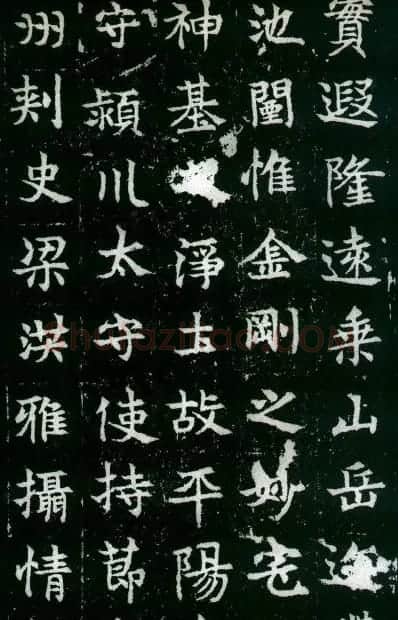 實遐隆遠乘山岳
池闡惟金剛之妙宅
神基淨土故平陽
守潁川太守使持節
州刺史梁洪雅攝情